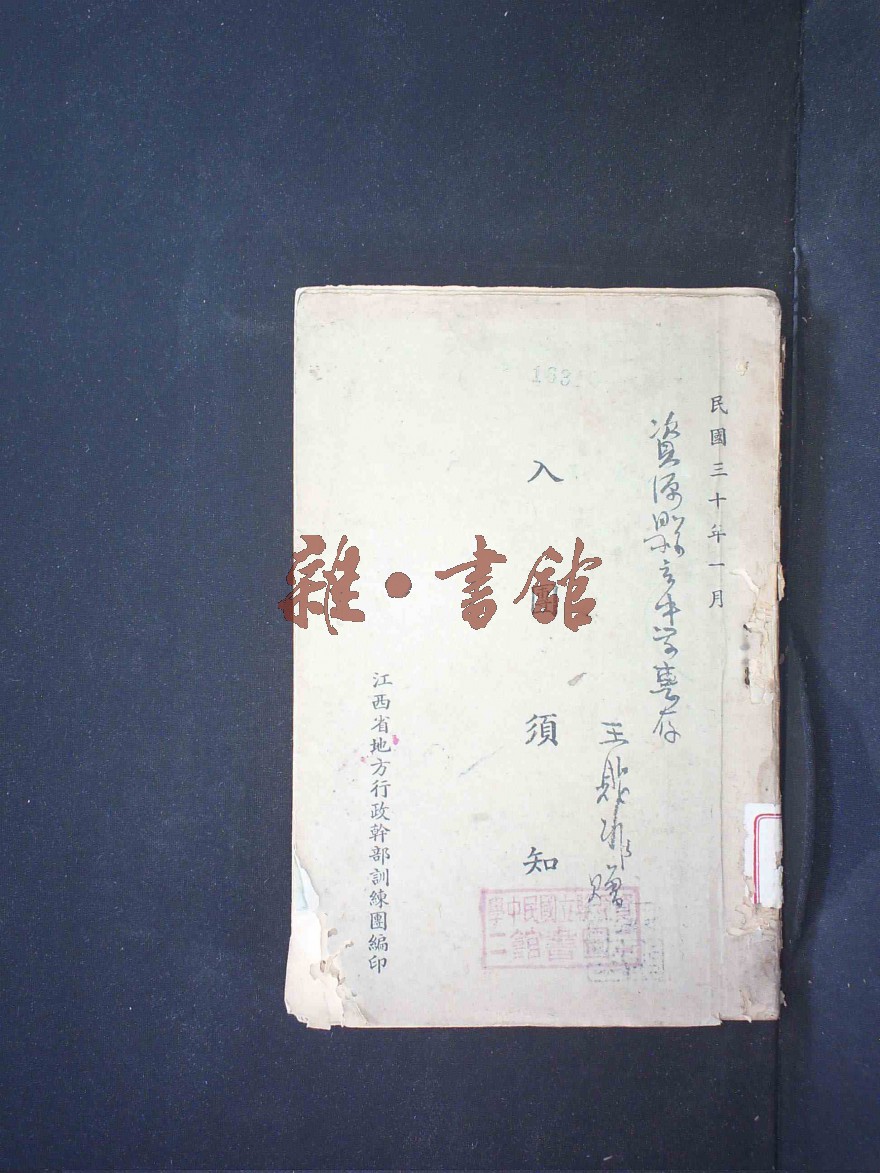 民國三十年一月
資源縣立中學惠存
王 贈
入團須知
江西省地方行政幹部訓練團編印
163
雜·書館
縣立國民中學
圖書館